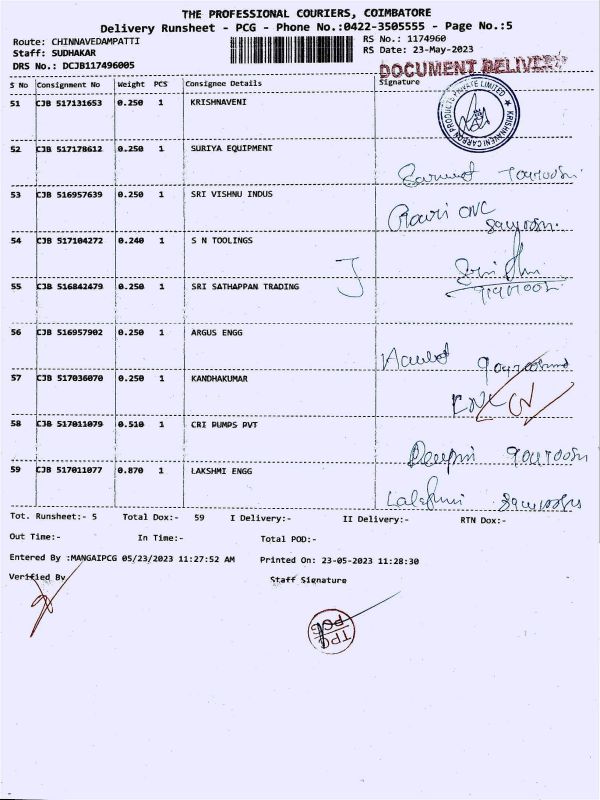 THE PROFESSIONAL COURIERS, COIMBATORE
Delivery Runsheet - PCG - Phone No.:0422-3505555 - Page No.:5
Route: CHINNAVEDAMPATTI RS No.: 1174960
Staff: SUDHAKAR RS Date: 23-May-2023
DRS No.: DCJB117496005
DOCUMENT DELIVERY
S No Consignment No Weight PCS Consignee Details Signature
51 CJB 517131653 0.250 1 KRISHNAVENI
KRISHNAVENI CARBON PRODUCTS PRIVATE LIMITED
52 CJB 517178612 0.250 1 SURIYA EQUIPMENT
53 CJB 516957639 0.250 1 SRI VISHNU INDUS
CNC
54 CJB 517104272 0.240 1 S N TOOLINGS
55 CJB 516842479 0.250 1 SRI SATHAPPAN TRADING
56 CJB 516957902 0.250 1 ARGUS ENGG
57 CJB 517036070 0.250 1 KANDHAKUMAR
58 CJB 517011079 0.510 1 CRI PUMPS PVT
59 CJB 517011077 0.870 1 LAKSHMI ENGG
Tot. Runsheet:- 5 Total Dox:- 59 I Delivery:- II Delivery:- RTN Dox:-
Out Time:- In Time:- Total POD:-
Entered By :MANGAIPCG 05/23/2023 11:27:52 AM Printed On: 23-05-2023 11:28:30
Verified By Staff Signature
TPC
PCG